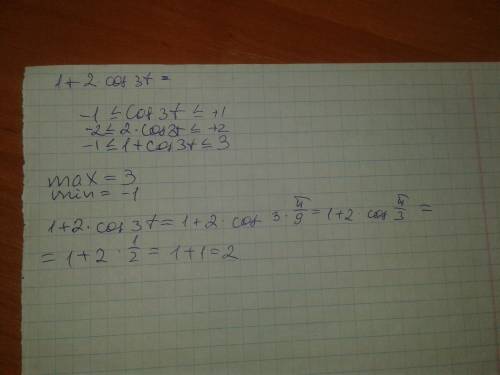 1+2·cos 3t =
-1 ≤ cos 3t ≤ +1
-2 ≤ 2·cos3t ≤ +2
-1 ≤ 1+cos3t ≤ 3
max = 3
min = -1
1+2·cos 3t = 1+2·cos 3·π/9 = 1+2 cos π/3 =
= 1+2·1/2 = 1+1=2